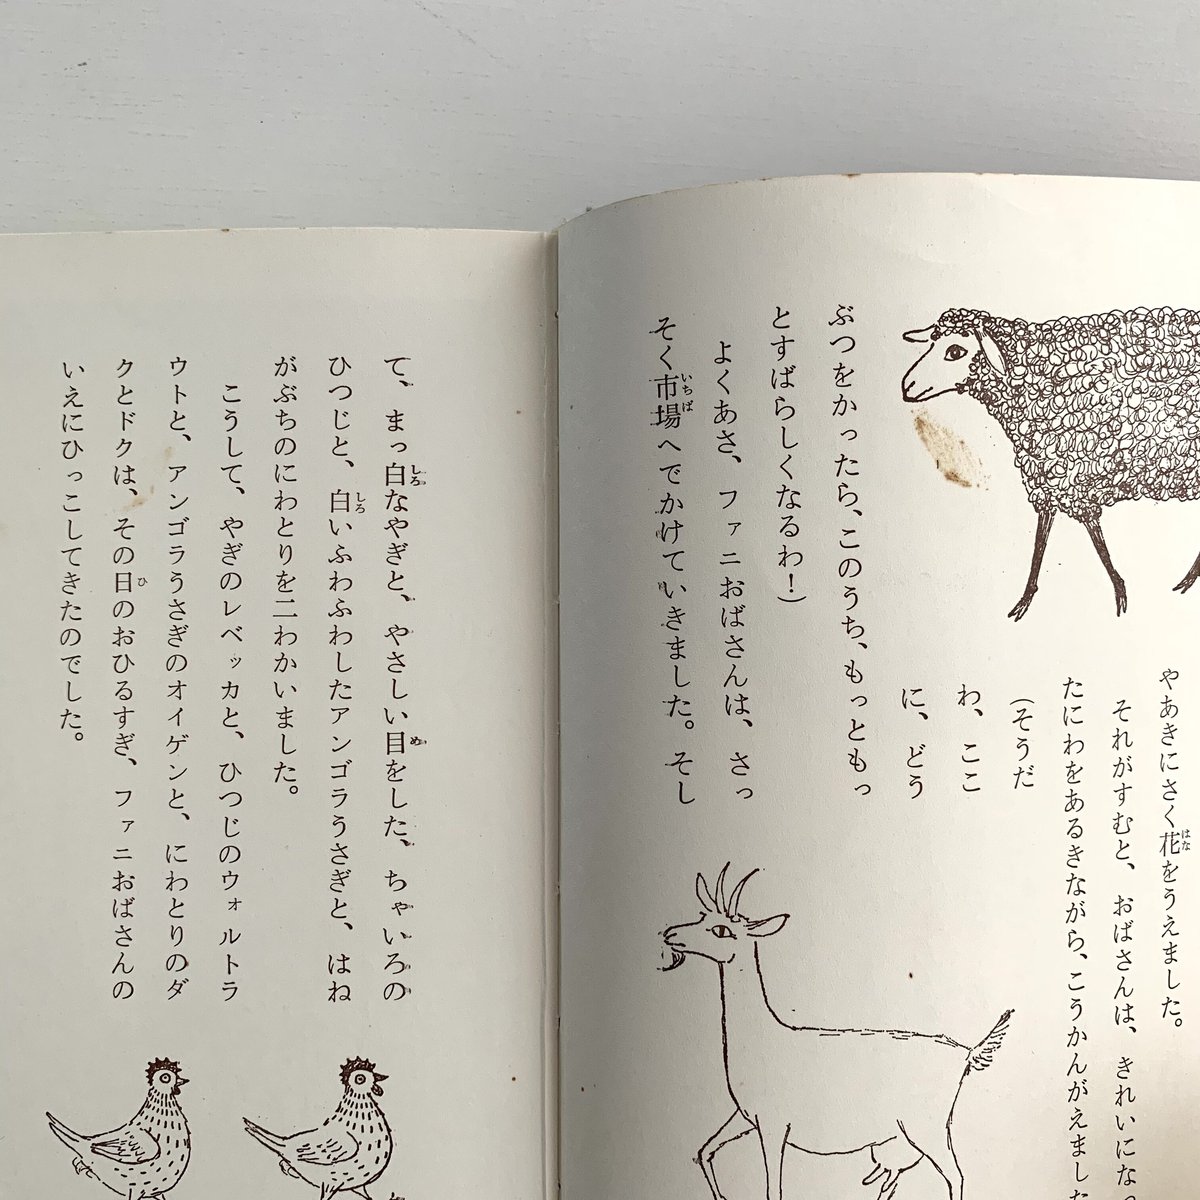 やあきにさく花をうえました。
それがすむと、おばさんは、きれいにな
たにわをあるきながら、こうかんがえました
(そうだ
わ、ここ
に、どう
ぶつをかったら、このうち、もっともっ
とすばらしくなるわ!)
よくあさ、ファニおばさんは、さっ
そく市場へでかけていきました。そし
て、まっ白なやぎと、やさしい目をした、ちゃいろの
ひつじと、白いふわふわしたアンゴラうさぎと、はね
がぶちのにわとりを二わかいました。
こうして、やぎのレベッカと、ひつじのウォルトラ
ウトと、アンゴラうさぎのオイゲンと、にわとりのダ
クとドクは、その日のおひるすぎ、ファニおばさんの
いえにひっこしてきたのでした。